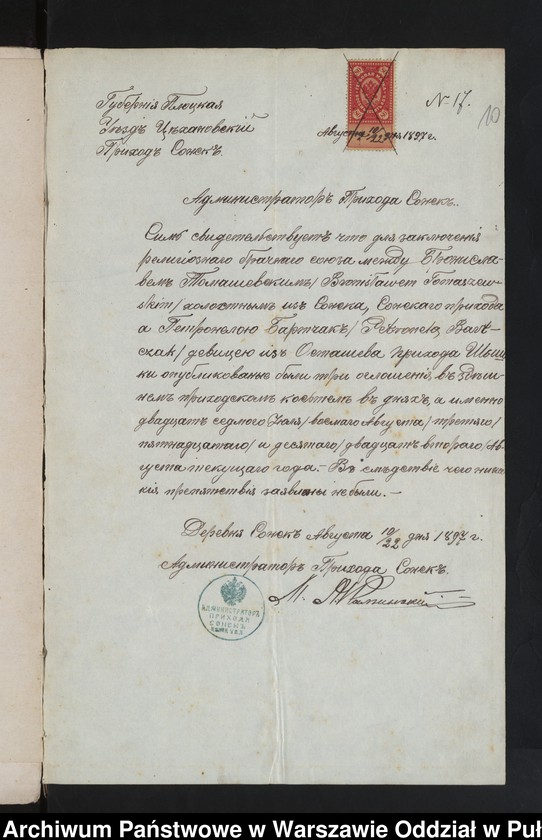 Губернія Плоцкая
Уѣздъ Цѣхановскій
Приходъ Сонскъ.
№ 17.
10
Августа 10/22 дня 1897 г.
Администраторъ Прихода Сонскъ.
Симъ свидетельствуетъ что для заключенія
религіознаго брачнаго союза между Брониславомъ
вемъ Томашевскимъ /Bronisławem Tomaszew-
skim/ холостымъ изъ Сонска, Сонскаго прихода
а Петронелою Бартчакъ /Petronela Bart-
czak/ девицею изъ Осташева прихода
ки опубликованые были три оглашенія въ здѣш-
немъ приходскомъ костелѣ въ дняхъ, а именно
двадцать седмого Іюля /восмаго Августа/ третяго/
пятнадцатаго/ и десятаго/ двадцать втораго/ Ав-
густа текущаго года. – Въ слѣдствіе чего ника
кія препятствія заявлены небыли. –
Деревня Сонскъ Августа 10/22 дня 1897 г.
Администраторъ Прихода Сонскъ.
АДМИНИСТРАТОРЪ
ПРИХОДА
СОНСКЪ
Archiwum Państwowe w Warszawie Oddział w Puł